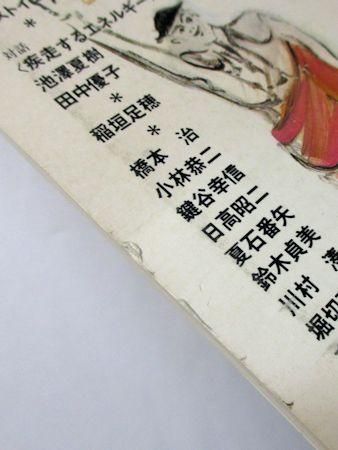 ストイ
＊
対話
〈疾走するエネルギー
池澤夏樹
田中優子
＊
稲垣足穂
＊
橋本 治
小林恭二
鍵谷幸信
日高昭二
夏石番矢
鈴木貞美
川村 湊
堀切